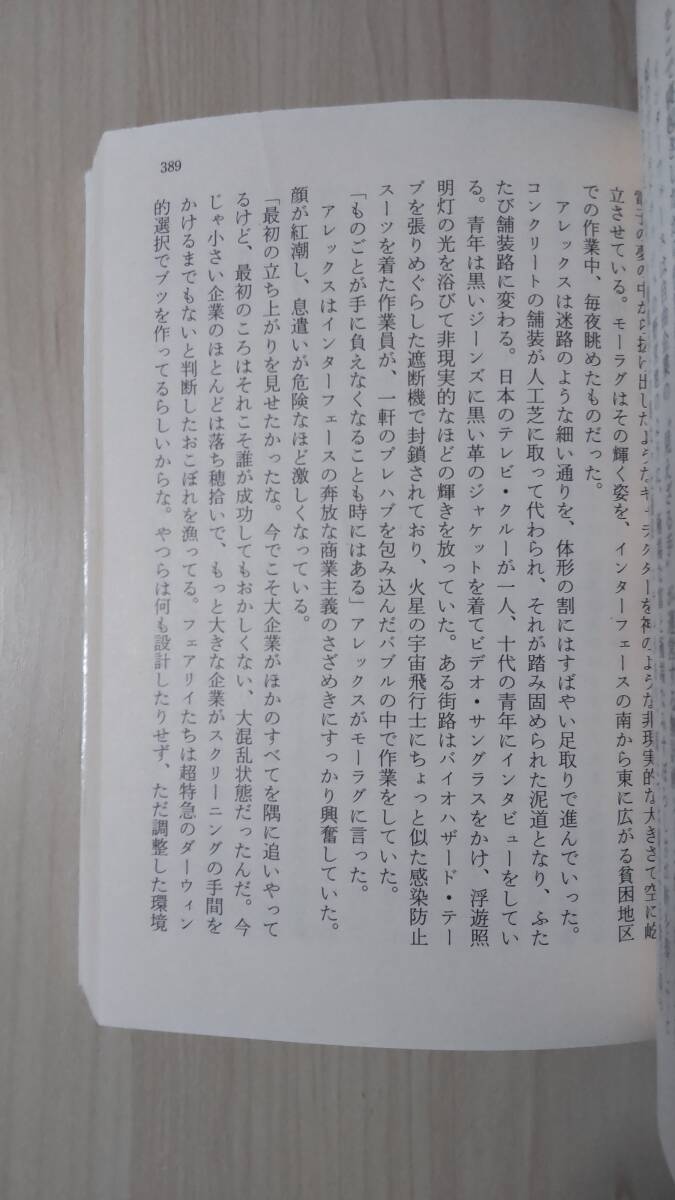 電子の夢の中から抜け出したようなキャラクターを神のような非現実的な大きさで空に屹
立させている。モーラグはその輝く姿を、インターフェースの南から東に広がる貧困地区
での作業中、毎夜眺めたものだった。
アレックスは迷路のような細い通りを、体形の割にはすばやい足取りで進んでいった。
コンクリートの舗装が人工芝に取って代わられ、それが踏み固められた泥道となり、ふた
たび舗装路に変わる。日本のテレビ・クルーが一人、十代の青年にインタビューをしてい
る。青年は黒いジーンズに黒い革のジャケットを着てビデオ・サングラスをかけ、浮遊照
明灯の光を浴びて非現実的なほどの輝きを放っていた。ある街路はバイオハザード・テー
プを張りめぐらした遮断機で封鎖されており、火星の宇宙飛行士にちょっと似た感染防止
スーツを着た作業員が、一軒のプレハブを包み込んだバブルの中で作業をしていた。
「ものごとが手に負えなくなることも時にはある」アレックスがモーラグに言った。
アレックスはインターフェースの奔放な商業主義のさざめきにすっかり興奮していた。
顔が紅潮し、息遣いが危険なほど激しくなっている。
「最初の立ち上がりを見せたかったな。今でこそ大企業がほかのすべてを隅に追いやって
るけど、最初のころはそれこそ誰が成功してもおかしくない、大混乱状態だったんだ。今
じゃ小さい企業のほとんどは落ち穂拾いで、もっと大きな企業がスクリーニングの手間を
かけるまでもないと判断したおこぼれを漁ってる。フェアリイたちは超特急のダーウィン
的選択でブツを作ってるらしいからな。やつらは何も設計したりせず、ただ調整した環境
389